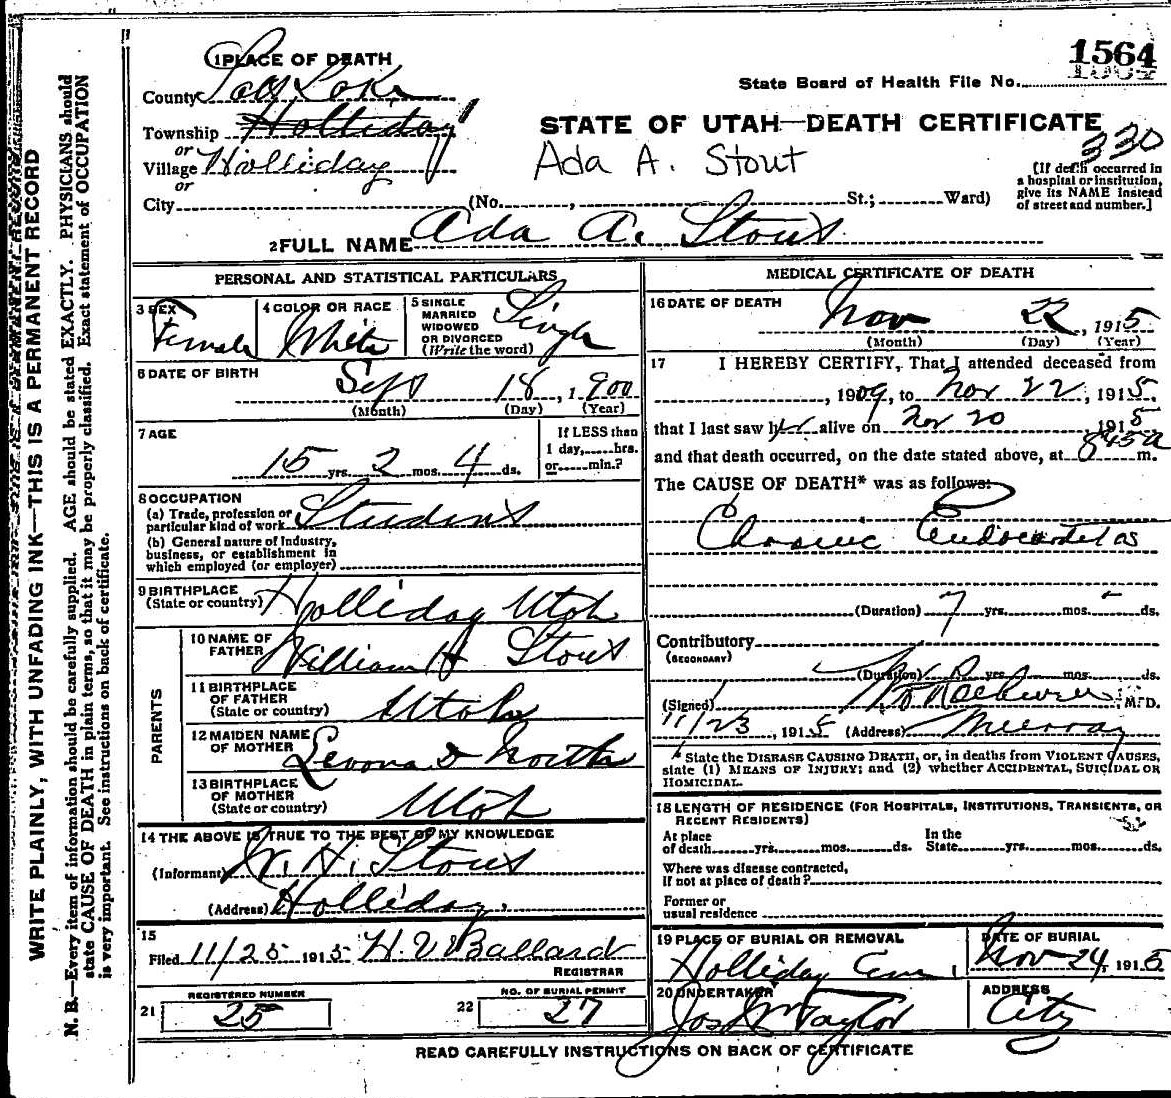 1564
State Board of Health File No.
1 PLACE OF DEATH
County Salt Lake
Township Holliday
or
Village Holliday
or
City (No. , St.; Ward)
STATE OF UTAH—DEATH CERTIFICATE
330
Ada A. Stout
[If death occurred in
a hospital or institution,
give its NAME instead
of street and number.]
2 FULL NAME Ada A. Stout
PERSONAL AND STATISTICAL PARTICULARS
3 SEX Female
4 COLOR OR RACE White
5 SINGLE
MARRIED
WIDOWED
OR DIVORCED
(Write the word) Single
6 DATE OF BIRTH Sept 18, 1900
(Month) (Day) (Year)
7 AGE
15 yrs. 2 mos. 4 ds.
If LESS than
1 day, hrs.
or min.?
8 OCCUPATION
(a) Trade, profession or
particular kind of work Student
(b) General nature of Industry,
business, or establishment in
which employed (or employer)
9 BIRTHPLACE
(State or country) Holliday Utah
PARENTS
10 NAME OF
FATHER William H Stout
11 BIRTHPLACE
OF FATHER
(State or country) Utah
12 MAIDEN NAME
OF MOTHER North
13 BIRTHPLACE
OF MOTHER
(State or country) Utah
14 THE ABOVE IS TRUE TO THE BEST OF MY KNOWLEDGE
(Informant) W. H. Stout
(Address) Holliday.
15
Filed 11/25 1915 H. V. Ballard
REGISTRAR
21 REGISTERED NUMBER
25
22 NO. OF BURIAL PERMIT
27
MEDICAL CERTIFICATE OF DEATH
16 DATE OF DEATH
Nov 22, 1915
(Month) (Day) (Year)
17 I HEREBY CERTIFY, That I attended deceased from
, 1909, to Nov 22, 1915,
that I last saw her alive on Nov 20 1915
and that death occurred, on the date stated above, at 845a m.
The CAUSE OF DEATH* was as follows:
Chronic Endocarditas
(Duration) 7 yrs. mos. ds.
Contributory
(SECONDARY)
(Duration) yrs. mos. ds.
(Signed) M. D.
11/23, 1915 (Address) Murray
* State the DISEASE CAUSING DEATH, or, in deaths from VIOLENT CAUSES,
state (1) MEANS OF INJURY; and (2) whether ACCIDENTAL, SUICIDAL OR
HOMICIDAL.
18 LENGTH OF RESIDENCE (FOR HOSPITALS, INSTITUTIONS, TRANSIENTS, OR
RECENT RESIDENTS)
At place
of death yrs. mos. ds.
In the
State yrs. mos. ds.
Where was disease contracted,
If not at place of death?
Former or
usual residence
19 PLACE OF BURIAL OR REMOVAL
Holliday Cem.
DATE OF BURIAL
Nov 24, 1915
20 UNDERTAKER
Jos Wm Taylor
ADDRESS
City
READ CAREFULLY INSTRUCTIONS ON BACK OF CERTIFICATE
WRITE PLAINLY, WITH UNFADING INK—THIS IS A PERMANENT RECORD
N. B.—Every item of information should be carefully supplied. AGE should be stated EXACTLY. PHYSICIANS should
state CAUSE OF DEATH in plain terms, so that it may be properly classified. Exact statement of OCCUPATION
is very important. See instructions on back of certificate.